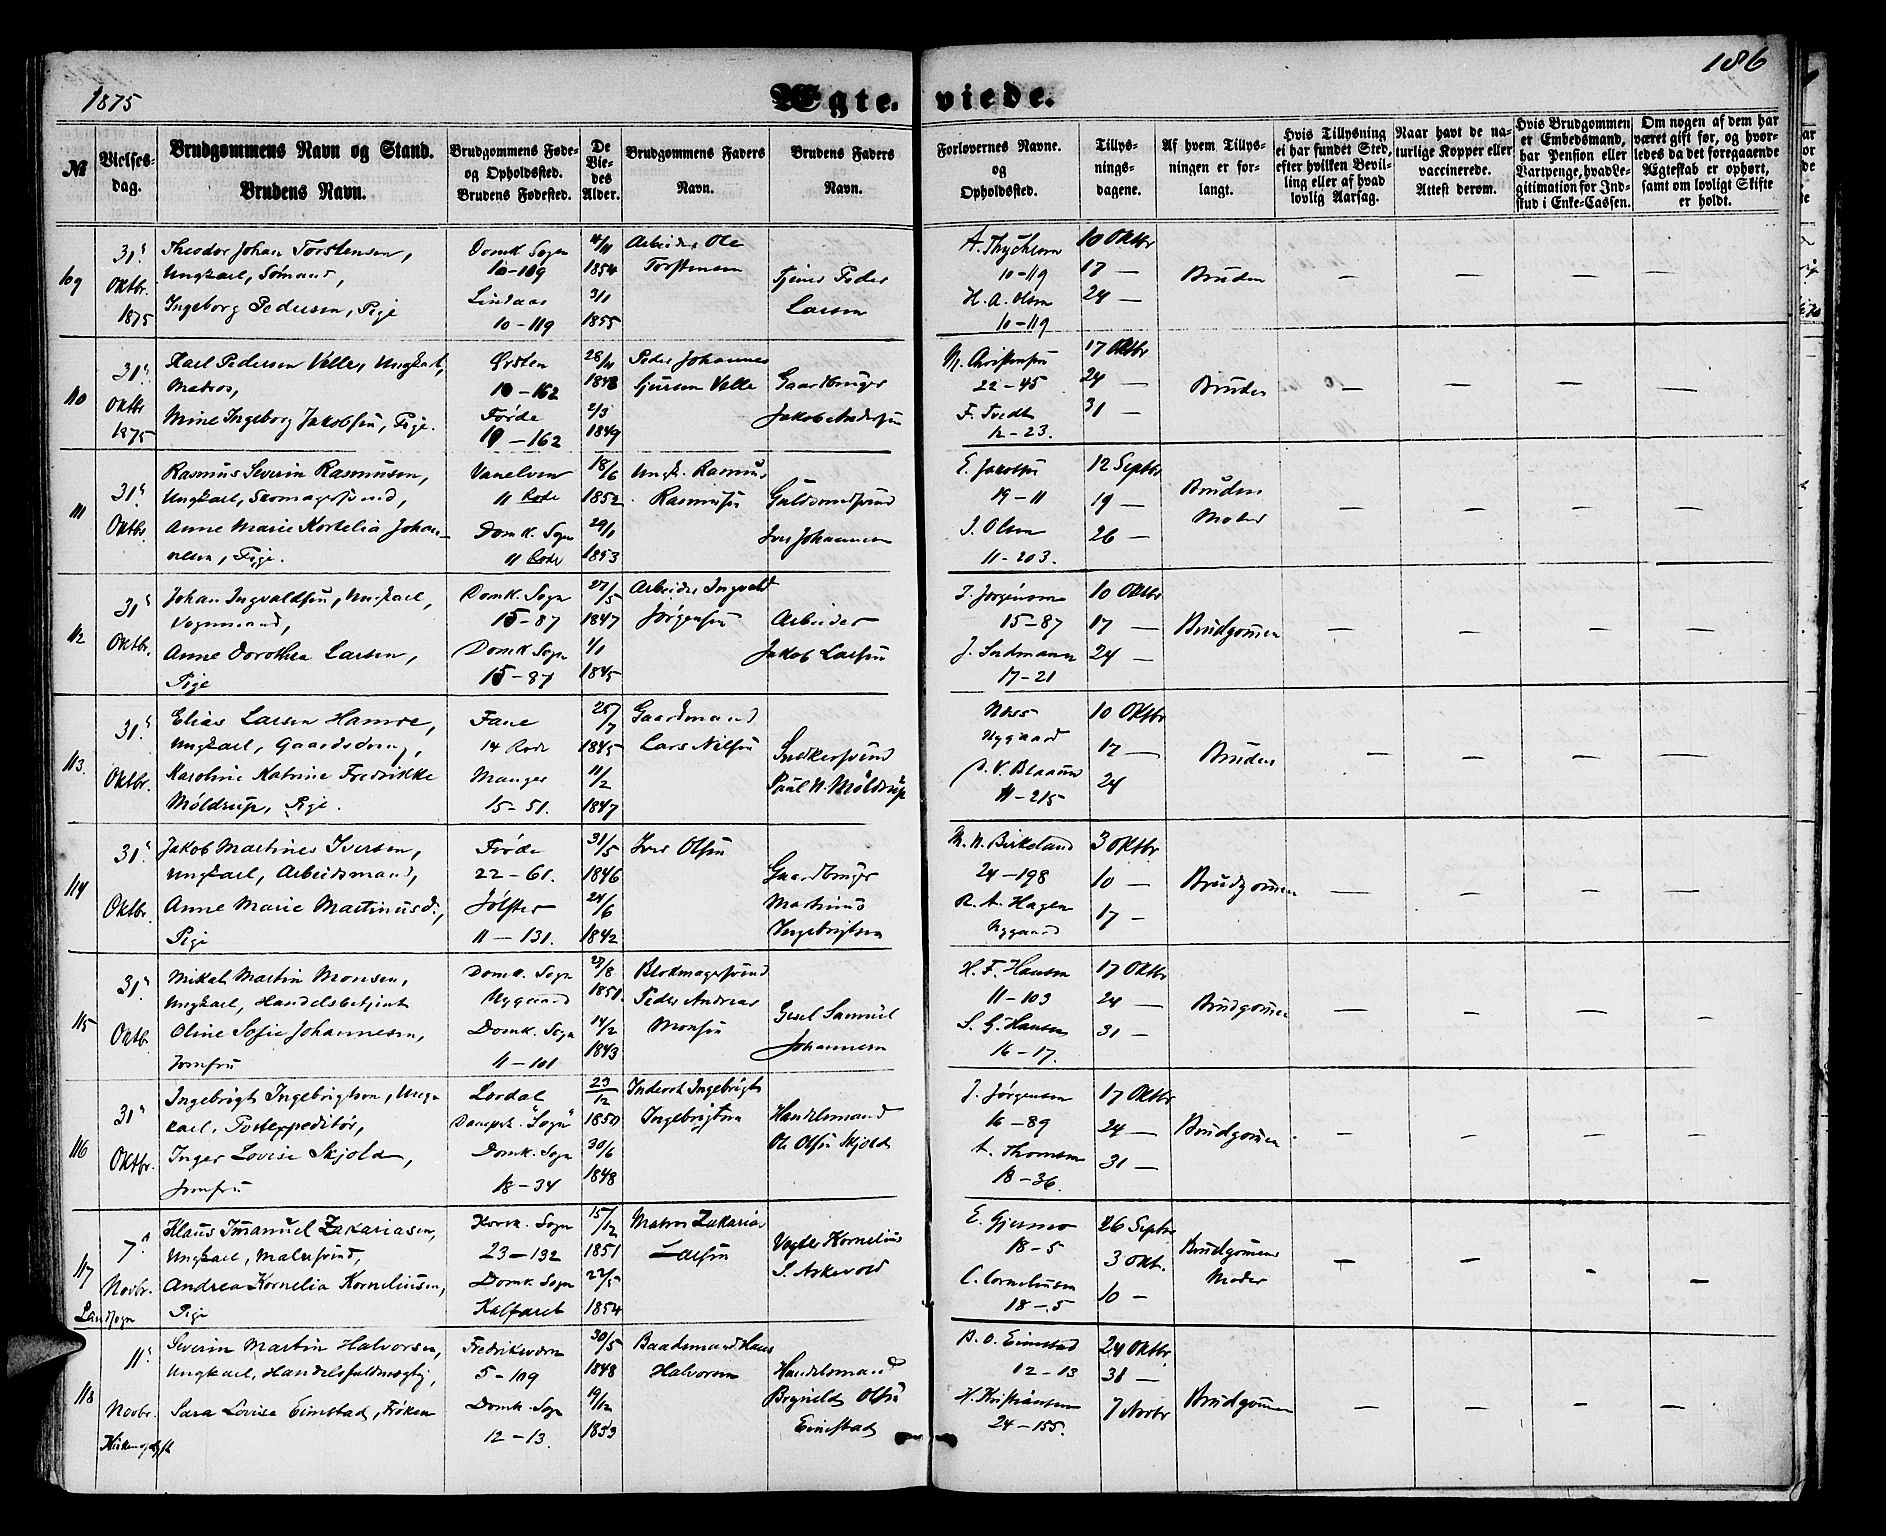 1875
Ægteviede.
186
№
Vielsesdag.
Brudgommens Navn og Stand.
Brudens Navn.
Brudgommens Føde-
og Opholdssted.
Brudens Fødested.
De
Vie-
des
Alder.
Brudgommens Faders
Navn.
Brudens Faders
Navn.
Forlovernes Navne.
og
Opholdssted.
Tillys-
nings-
dagene.
Af hvem Tillys-
ningen er for-
langt.
Hvis Tillysning
ei har fundet Sted,
efter hvilken Bevil-
ling eller af hvad
lovlig Aarsag.
Naar havt de na-
turlige Kopper eller
vaccinerede.
Attest derom.
Hvis Brudgommen
er Embedsmand,
har Pension eller
Vartpenge, hvad Le-
gitimation for Ind-
stud i Enke-Cassen.
Om nogen af dem har
været gift før, og hvor-
ledes da det foregaaende
Ægteskab er ophørt,
samt om lovligt Skifte
er holdt.
109
31'
Oktbr.
1875
Theodor Johan Torstensen,
Ungkarl, Sømand,
Ingeborg Pedersen, Pige
Domk. Sogn
10-119
Lindaas
10-119
4/11
1854
3/1
1855
Arbeider Ole
Torstensen
Tjener Peder
Larsen
10-119
H. A. Olsen
10-119
10 Oktbr
17 —
24 —
Bruden
110
31'
Oktbr
1875
Karl Pedersen Velle, Ungkarl,
Matros,
Mine Ingeborg Jakobsen, Pige.
Ørsten
10-162
Førde
10-162
28/11
1848
2/3
1849
Peder Johannes
Velle
Gaardbruger
Jakob Andersen
N. Christensen
22-45
F. Tvedt
12-23.
17 Oktbr
24 —
31 —
Bruden
111
31'
Oktbr.
Rasmus Severin Rasmussen,
Ungkarl, Skomagersvend,
Anne Marie Kornelia Johan-
nesen, Pige.
Vanelven
11 Rode
Domk. Sogn
11 Rode
18/6
1852
29/1
1853
Ungk. Rasmus
Rasmussen
Guldsmedsvend
Iver Johannesen
E. Jacobsen
19-11
J. Olsen
11-203.
12 Septbr
19 —
26 —
Brudens
Moder
112
31'
Oktbr.
Johan Ingvaldsen, Ungkarl,
Vognmand,
Anne Dorothea Larsen,
Pige
Domk. Sogn
15-87
Domk. Sogn
15-87
27/5
1847
1/1
1845
Arbeider Ingvald
Jørgensen
Arbeider
Jakob Larsen
J. Jørgensen
15-87
J. Sandmann
17-21
10 Oktbr
17 —
24 —
Brudgommen
113.
31'
Oktbr.
Elias Larsen Hamre,
Ungkarl, Gaardsdreng,
Karoline Katrine Fredrikke
Møldrup, Pige.
Fane
14 Rode
Manger
15-51.
25/7
1845
11/2
1847
Gaardmand
Lars Nilsen
Snedkersvend
Paul N. Møldrup
Næss
Nygaard
11-215
10 Oktbr
17 —
24
Bruden
114
31'
Oktbr.
Jakob Martines Iversen,
Ungkarl, Arbeidsmand,
Anne Marie Martinusd.,
Pige
Førde
22-61.
Jølster
11-131.
31/5
1846
24/6
1842
Iver Olsen
Gaardbruger
Martinus
Ingebrigtsen
N. N. Birkeland
24-198
R. A. Hagen
Nygaard
3 Oktbr
10 —
17 —
Brudgommen
115
31'
Oktb.
Mikal Martin Monsen,
Ungkarl, Handelsbetjent
Oline Sofie Johannesen,
Jomfru
Domk. Sogn
Nygaard
Domk. Sogn
11-101
27/8
1851.
14/2
1843
Blokmagersvend
Peder Andreas
Monsen
Gesel Samuel
Johannesen
H. F. Hansen
11-103
S. G. Hansen
16-17.
17 Oktbr
24 —
31 —
Brudgommen
116
31'
Oktbr.
Ingebrigt Ingebrigtsen, Ung-
karl, Postexpeditør,
Inger Lovise Skjold,
Jomfru
Lerdal
Dampsk. "Sogn"
Domk. Sogn
18-34
23/12
1850
30/6
1848
Inderst Ingebrigt
Ingebrigtsen
Handelsmand
Ole Olsen Skjold
J. Jørgensen
16-89
A. Thomsen
18-36.
17 Oktbr
24 —
31 —
Brudgommen
117
7'
Novbr.
Landsogn
Klaus Imanuel Zakariasen,
Ungkarl, Malersvend,
Andrea Kornelia Korneliusen,
Pige
Korsk. Sogn
23-132
Domk. Sogn
Kalfaret
15/12
1851
27/5
1854
Matros Zakarias
Larsen
Vægter Kornelius
S. Askevold
E. Gjermo
18-5
C. Corneliusen
18-5
26 Septbr
3 Okt.
10 —
Brudgommens
Moder
118
11'
Novbr.
Severin Martin Halvorsen,
Ungkarl, Handelsfuldmægtig,
Sara Lovise Eimstad, Frøken
Fredriksværn
5-109
Domk. Sogn
12-13.
30/5
1848
19/12
1853
Baadsmand Hans
Halvorsen
Handelsmand
Brynild Olsen
Eimstad
B. O. Eimstad
12-13
H. Kristiansen
24-155.
24 Oktbr.
31 —
7 Novbr
Brudgommen